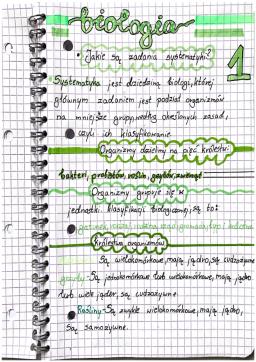 biologia
1
• Jakie są zadania systematyki?
Systematyka jest dziedziną biologi, której
głównym zadaniem jest podział organizmów
na mniejsze grupy, według określonych zasad,
czyli ich klasyfikowanie.
Organizmy dzielimy na pięć królestw:
bakteri, protistów, roślin, grzybów, zwierząt
Organizmy grupuje się w
jednostki klasyfikacji biologicznej, są to:
gatunek, rodzaj, rodzina, rząd, gromada, typ, królestwo
Królestwa organizmów
Są wielokomórkowe, mają jądro, są cudzożywne
grzyby - Są jednokomórkowe lub wielokomórkowe, mają jądro
lub wiele jąder, są cudzożywne
Rośliny - Są zwykle wielokomórkowe, mają jądro,
są samożywne.